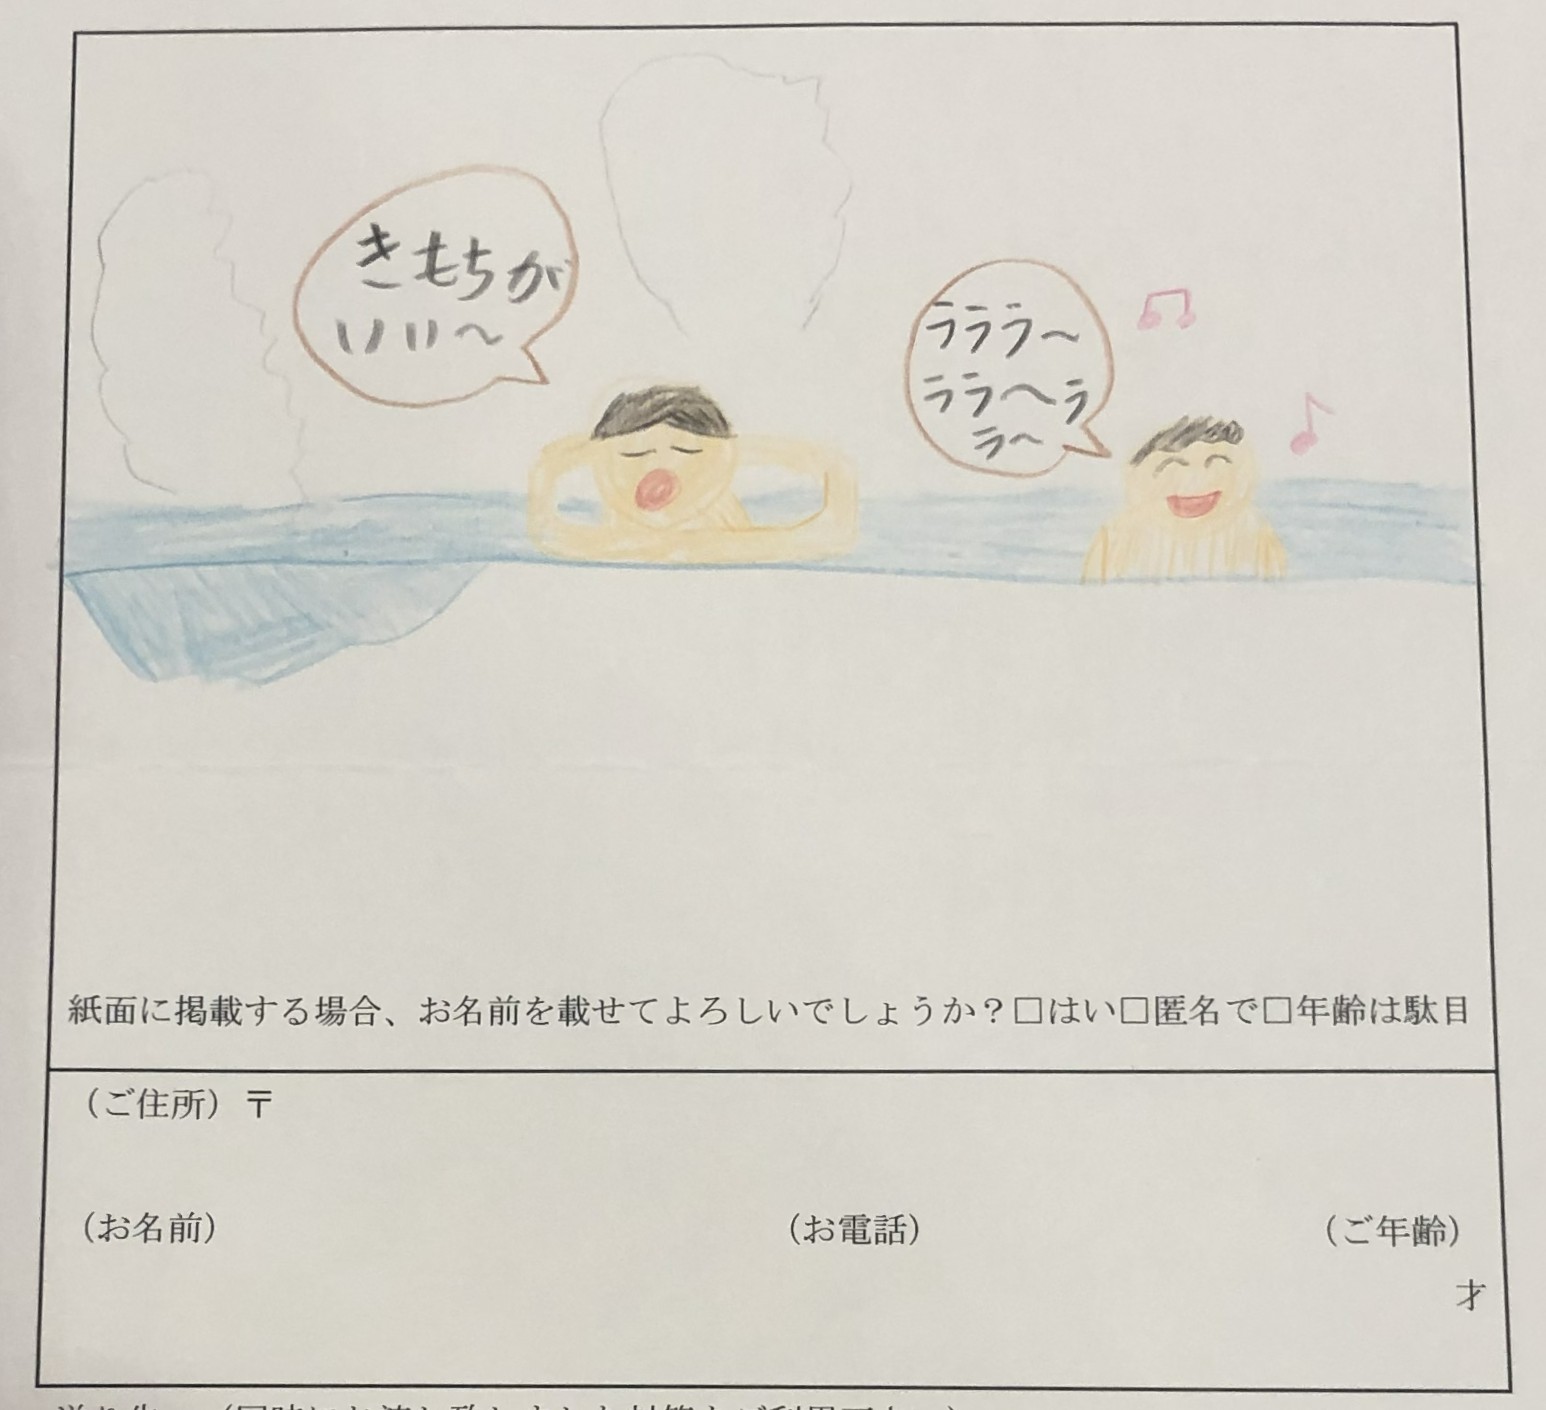 きもちが
いいい〜
ラララ〜
ララ〜ラ
ラ〜
紙面に掲載する場合、お名前を載せてよろしいでしょうか？□はい□匿名で□年齢は駄目
（ご住所）〒
（お名前）
（お電話）
（ご年齢）
才